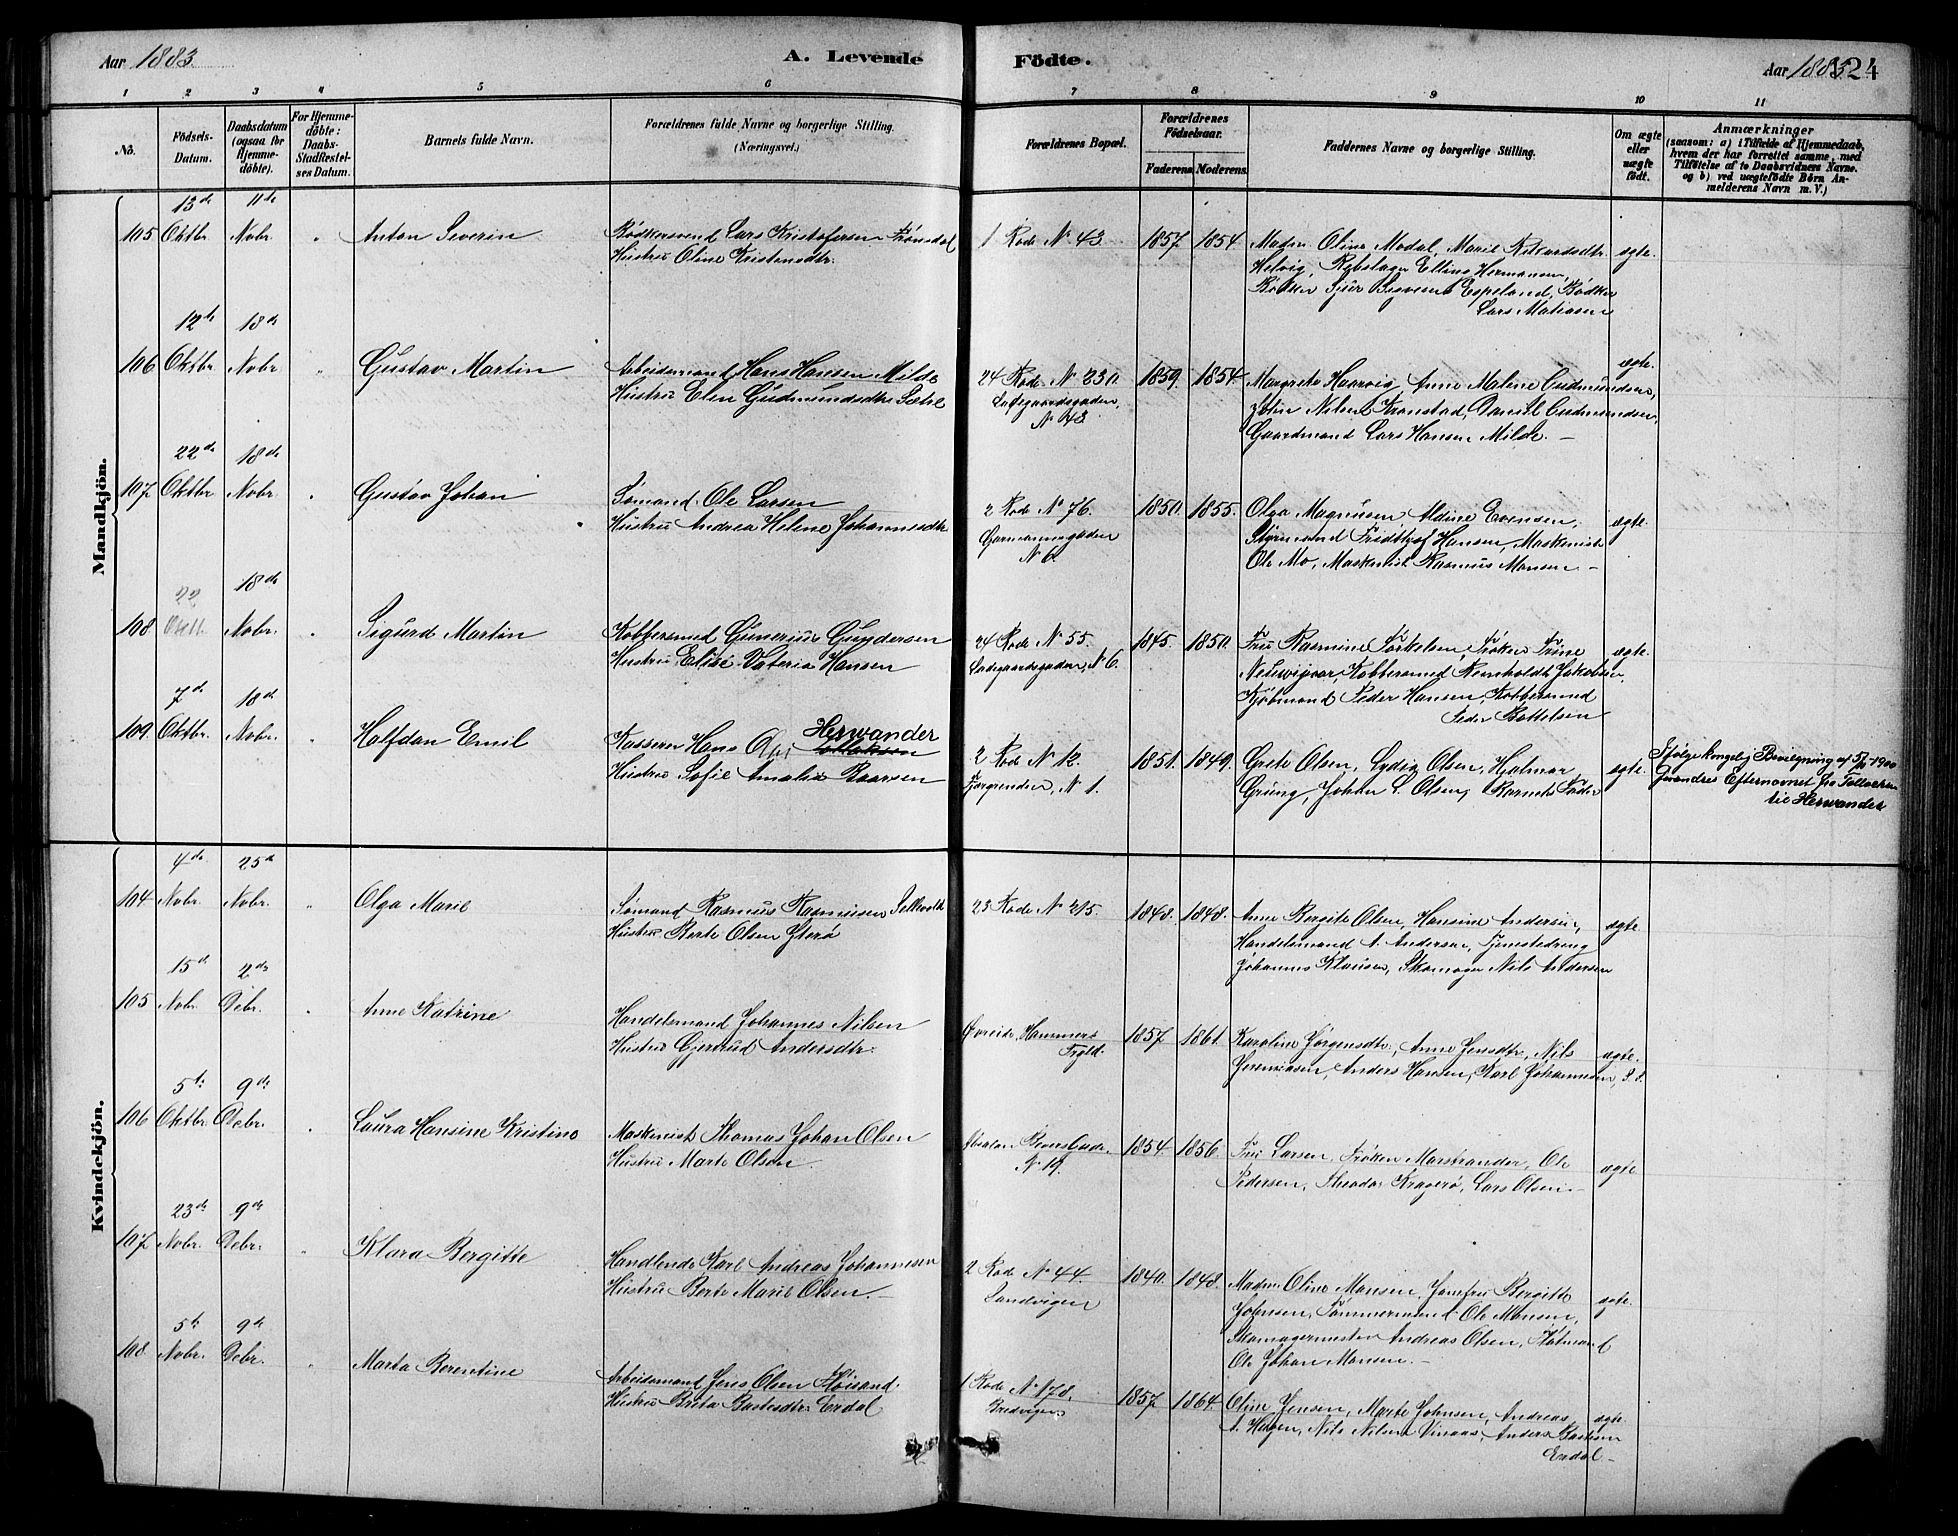 Aar 1883.
A. Levende
Födte.
Aar 1883.
124
1 2 3 4 5 6 7 8 9 10 11
No.
Födsels-Datum.
Daabsdatum (ogsaa for Hjemme-döbte).
For Hjemme-döbte: Daabs-Stadfæstel-ses Datum.
Barnets fulde Navn.
Forældrenes fulde Navne og borgerlige Stilling.
(Næringsvei.)
Forældrenes Bopæl.
Forældrenes Födselsaar.
Faderens Moderens.
Faddernes Navne og borgerlige Stilling.
Om ægte eller uægte födt.
Anmærkninger
(saasom: a) i Tilfælde af Hjemmedaab, hvem der har forrettet samme, med Tilföielse af to Daabsvidners Navne. og b) ved uægtefödte Börn An-melderens Navn m. V.)
Mandkjön.
13de 11te
105 Oktbr. Nobr. " Anton Severin Bødkersvend Lars Kristofersen Trønsdal 1 Rode N 43. 1857. 1854. Madm Oline Modal, Marie Rikardsdtr. ægte.
Hustru Oline Kristensdtr. Helvig, Rebslager Elling Hermansen,
Bødker Sjur Espeland, Bødker
Lars Matiasen
12te 18de
106 Oktbr. Nobr. " Gustav Martin Arbeidsmand Hans Hansen Milde 24 Rode N 230. 1859. 1854. Margrete Haarvig, Anne Maline Gudmundsen, ægte.
Hustru Elen Gudmundsdtr. Sætre Ladegaardsgaden, Nilsen Kronstad, Daniel Gudmundsen,
N 43 Gaardmand Lars Hansen Milde. —
22de 18de
107 Oktbr. Nobr. " Gustav Johan Sømand Ole Larsen 2 Rode N 76. 1850. 1855. Olga Magnusen, Aldine Evensen, ægte.
Hustru Andrea Helene Johannesdtr. N 6. Styrmand Fridthjof Hansen, Maskinist
Ole Mo, Maskinist Rasmus Monsen —
22 18de
108 Oktb. Nobr. " Sigurd Martin Kobbersmed Gunerius Gundersen 24 Rode N 55. 1845. 1850. Fru Rasmine Torkelsen, Frøken Trine ægte.
Hustru Elise Valeria Hansen Ladegaardsgaden, N 6. Kobbersmed Reinholdt Jakobsen,
Kjøbmand Peder Hansen, Kobbersmed
Peder Bottelsen
7de 18de
109. Oktbr. Nobr. " Halfdan Emil Kasserer Hans Herwander 2 Rode N 12. 1851. 1849. Grete Olsen, Lydia Olsen, Hjalmar ægte. Ifølge kongelig Bevilgning af 1900
Hustru Sofie Amalia Baarsen N 1. Grung, Johan L. Olsen, Barnets Fader forandres Efternavnet fra
til Herwander
Kvindekjön.
4de 25de
104 Nobr. Nobr. " Olga Marie Sømand Rasmus Rasmusen 23 Rode N 215. 1848. 1848. Anne Bergite Olsen, Hansine Andersen, ægte
Hustru Berte Olsen Yterø Handelsmand A. Andersen, Tjenestedreng
Johannes Klausen, Skomager Nils Andersen
15de 2den
105 Nobr. Debr. " Anne Katrine Handelsmand Johannes Nilsen Hammers 1857 1861. Karoline Jørgensdtr., Anne Jensdtr., Nils ægte.
Hustru Gjertrud Andersdtr. Prgld. Jeremiasen, Anders Hansen, Karl Johannesen,
5te 9de
106 Oktbr. Debr. " Laura Hansine Kristine Maskinist Thomas Johan Olsen 1854. 1856. Fru Larsen, Frøken Marstrander, Ole ægte
Hustru Marte Olsen. N 19. Pedersen, Theodor Kragerø, Lars Olsen. —
23de 9de
107 Nobr. Debr. " Klara Bergitte Handlende Karl Andreas Johannesen 2 Rode N 44. 1840. 1848. Madm. Oline Monsen, Jomfru Bergitte ægte.
Hustru Berte Marie Olsen. — Sandvigen Johnsen, Tømmermand Ole Monsen,
Skomagermester Andreas Olsen,
Ole Johan Monsen. —
5te 9de
108 Nobr. Debr. " Marta Berentine Arbeidsmand Jens Olsen Høisand. 1 Rode N 178. 1857. 1864. Oline Jensen, Marte Johnsen, Andreas ægte
Hustru Brita Bastesdtr. Erdal Bredvigen A. Hagen, Nils Nilsen Vinaas, Anders Bastesen
Erdal —